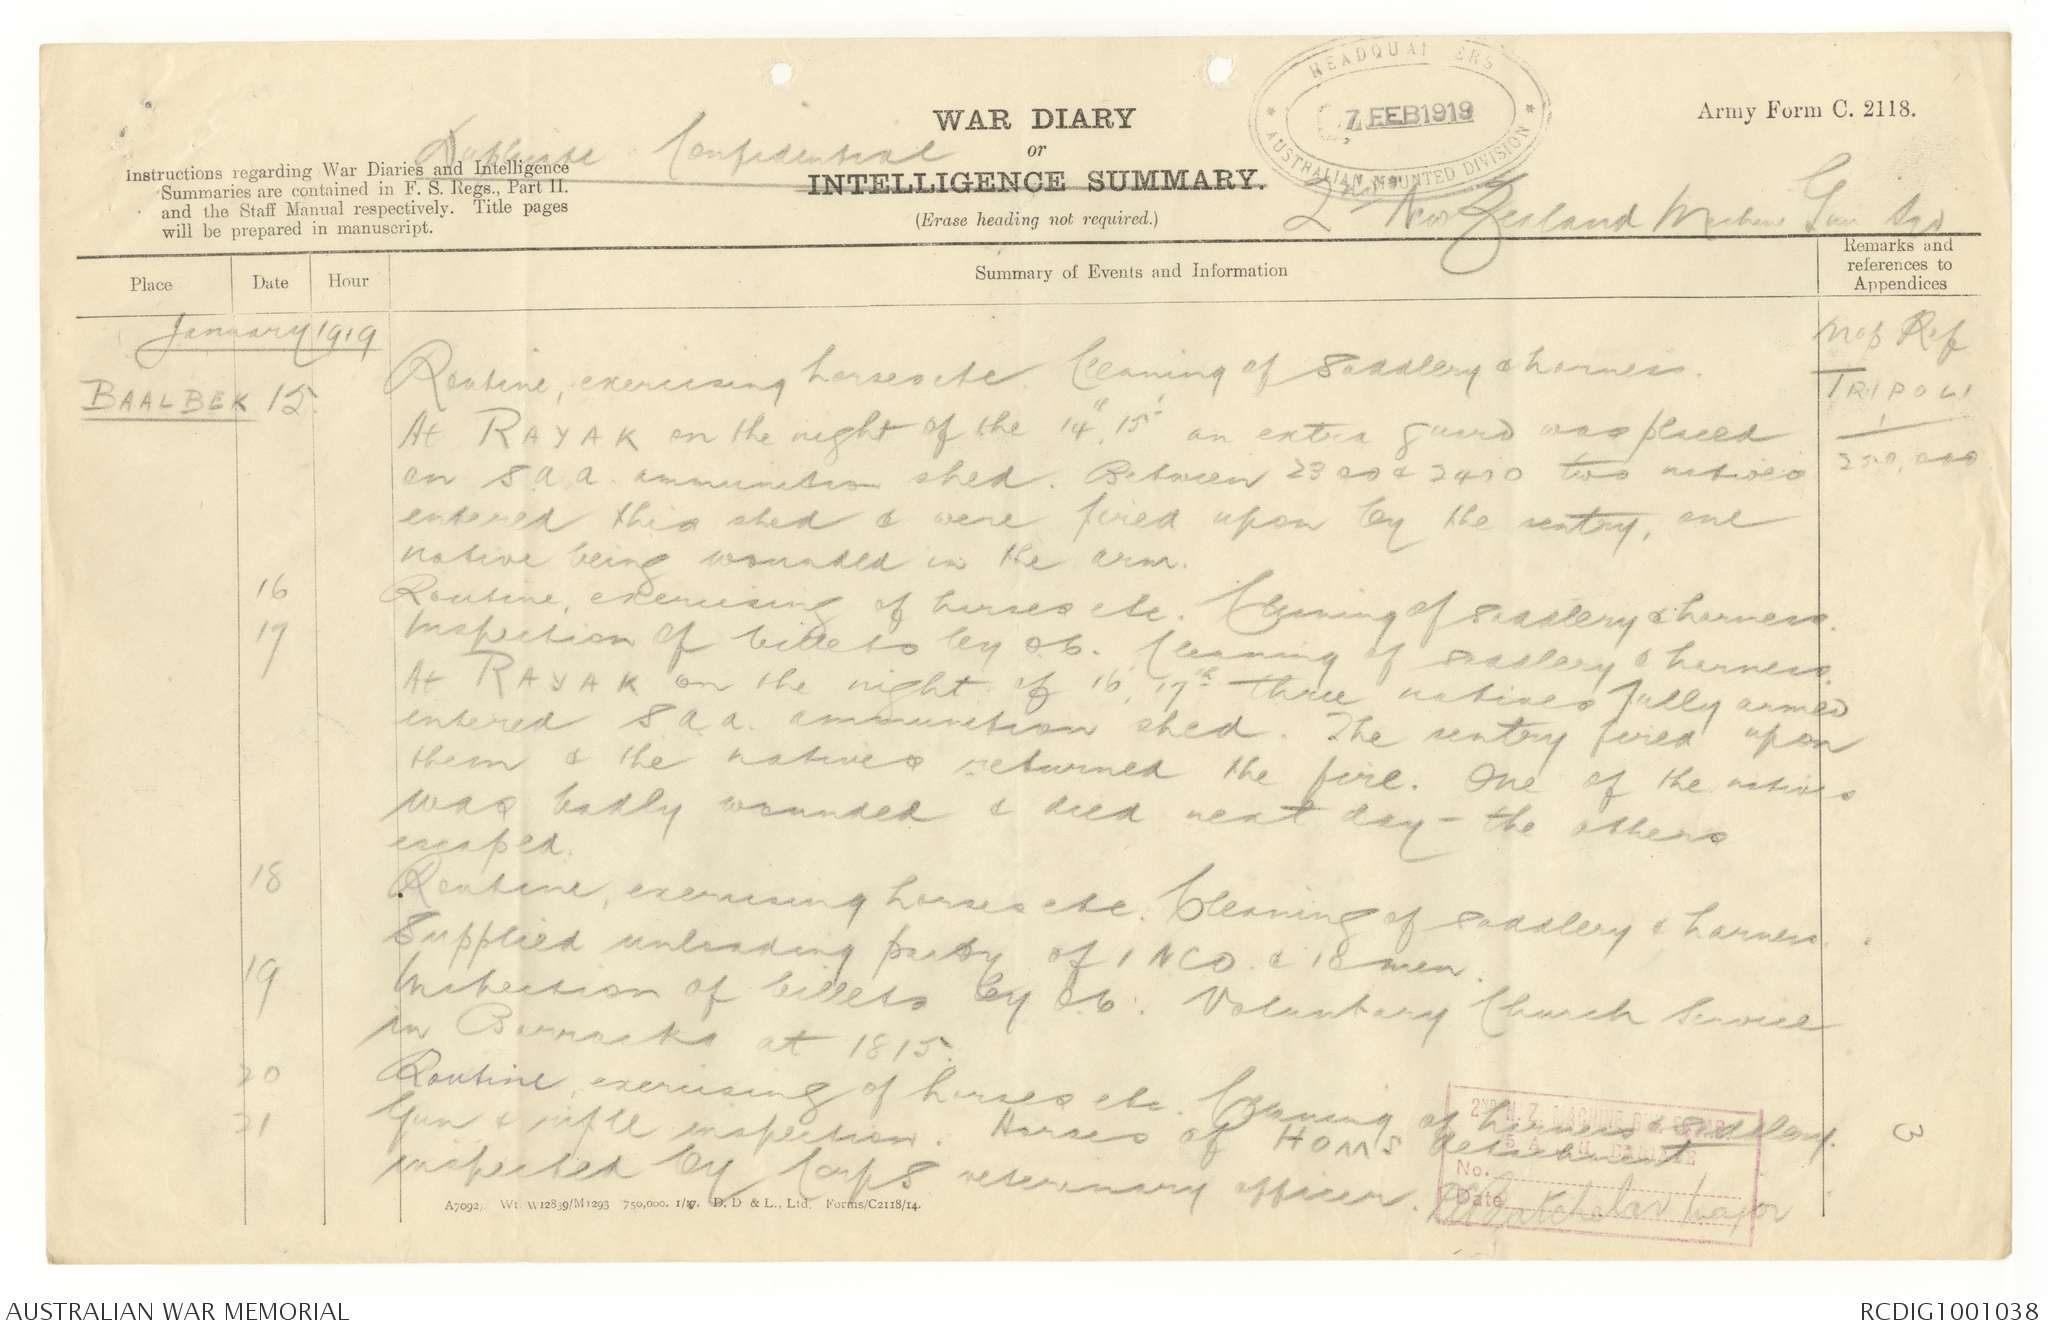 HEADQUARTERS
7 FEB 1919
AUSTRALIAN MOUNTED DIVISION
WAR DIARY
or
INTELLIGENCE SUMMARY.
(Erase heading not required.)
Army Form C. 2118.
Duplicate Confidential
Instructions regarding War Diaries and Intelligence
Summaries are contained in F. S. Regs., Part II.
and the Staff Manual respectively. Title pages
will be prepared in manuscript.
2nd New Zealand Machine Gun Sqd
Place
Date
Hour
Summary of Events and Information
Remarks and
references to
Appendices
January 1919
Map Ref
TRIPOLI
1
250,000
BAALBEK 15 Routine, exercising horses etc. Cleaning of saddlery & harness.
At RAYAK on the night of the 14th, 15th an extra guard was placed
on S.a.a. ammunition shed. Between 2300 & 2400 two natives
entered this shed & were fired upon by the sentry, one
native being wounded in the arm.
16 Routine, exercising of horses etc. Cleaning of saddlery & harness.
17 Inspection of billets by O.C. Cleaning of saddlery & harness.
At RAYAK on the night of 16, 17th three natives fully armed
entered S a.a. ammunition shed. The sentry fired upon
them & the natives returned the fire. One of the natives
was badly wounded & died next day - the others
escaped.
18 Routine, exercising horses etc. Cleaning of saddlery & harness.
Supplied unloading party of 1 NCO. & 18 men.
19 Inspection of billets by O.C. Voluntary Church Service
in Barracks at 1815.
20 Routine, exercising of horses etc. Cleaning of harness & saddlery.
21 Gun & rifle inspection. Horses of HOMS detachment
inspected by Corps veterinary officer.
3
2ND N.Z. MACHINE GUN
No.
Date
Batchelar Major
A7092. Wt. W12839/M1293 750,000. 1/17. D. D & L., Ltd. Forms/C2118/14.
AUSTRALIAN WAR MEMORIAL
RCDIG1001038